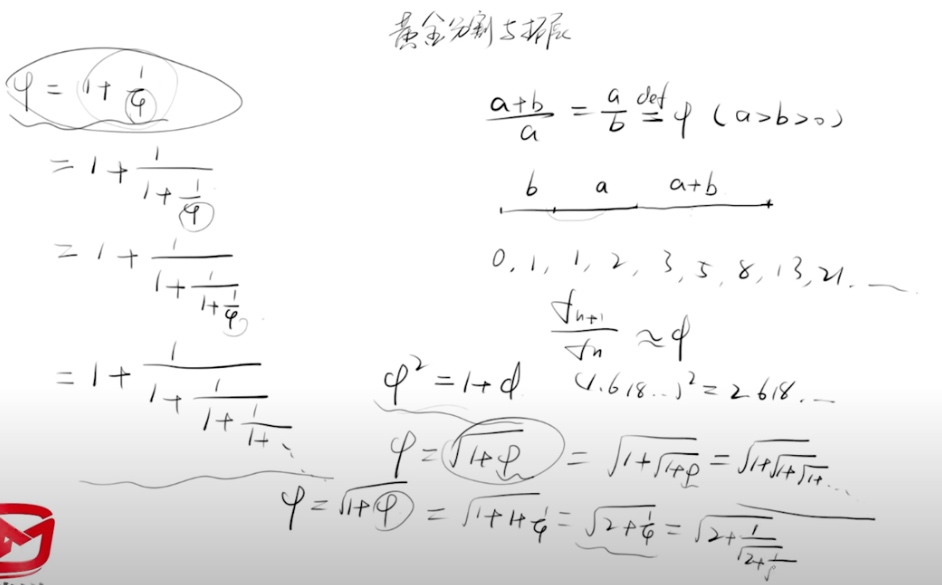 黄金分割与拓展
φ = 1 + 1/φ
= 1 + 1/(1 + 1/φ)
= 1 + 1/(1 + 1/(1 + 1/φ))
= 1 + 1/(1 + 1/(1 + 1/(1 + ⋱
(a+b)/a = a/b def= φ (a>b>0)
b a a+b
0, 1, 1, 2, 3, 5, 8, 13, 21, ...
f_{n+1}/f_n ≈ φ
φ² = 1 + φ (1.618...)² = 2.618...
φ = √(1+φ) = √(1+√(1+φ)) = √(1+√(1+√(1+...
φ = √(1+φ) = √(1+1+1/φ) = √(2+1/φ) = √(2+1/√(2+1/√